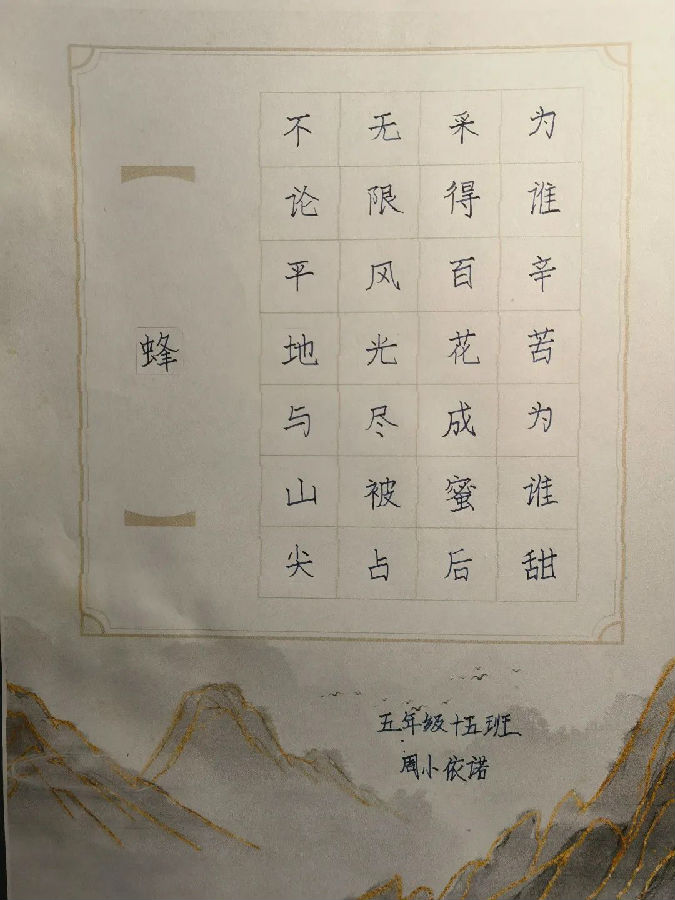 蜂
不论平地与山尖
无限风光尽被占
采得百花成蜜后
为谁辛苦为谁甜
五年级十五班
周小依诺